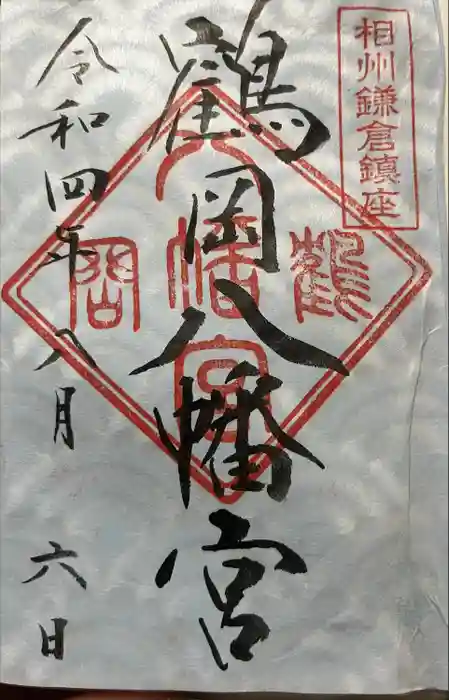 相州鎌倉鎮座
鶴岡八幡宮
鶴岡八幡宮
令和四年八月六日